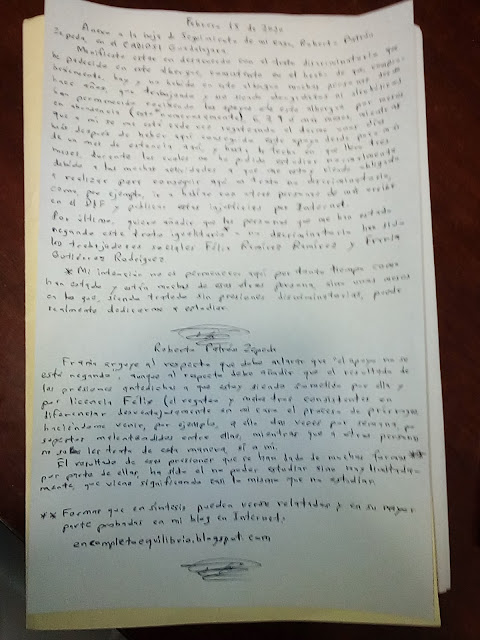 Febrero 18 de 2020
Anexo a la hoja de Seguimiento de mi caso, Roberto Patrón
Zepeda, en el CADIPSI Guadalajara.
Manifiesto estar en desacuerdo con el trato discriminatorio que
he padecido en este albergue, consistente en el hecho de que,
hay y ha habido en este albergue muchas personas desde
hace años, que trabajando y no siendo
han permanecido recibiendo los apoyos de este albergue por meses
en tendencia (este 6, 7, 9 o más meses, mientras
que a mí se me está cada vez regateando el décimo
más después de haber conseguido este apoyo desde
de un mes de estancia aquí, y hasta la fecha en que llevo tres
meses, durante los cuales no he podido estudiar normalmente
debido a las muchas actividades a que me estoy viendo obligado
a realizar para conseguir aquí un trato no discriminatorio,
como por ejemplo, ir a hablar con otras personas de más
en el DIF y publicar estas injusticias por Internet.
Por último, quiero añadir que las personas que me han estado
negando este trato igualitario* o no discriminatorio han sido
los trabajadores sociales Félix Ramírez Ramírez y
Gutiérrez Rodríguez
* Mi intención no es permanecer aquí por tanto tiempo como
han estado y están muchas de esas otras personas, sino unos meses
en los que, siendo tratado sin presiones discriminatorias, puede
realmente dedicarme a estudiar.
Roberto Patrón Zepeda
arguye al respecto que debo aclarar que "el apoyo no se
está negando", aunque al respecto debo añadir que el resultado de
las presiones antedichas a que estoy siendo sometido por ella y
por licencia Félix (el regateo y maltrato consistentes en
diferenciar desventajosamente en mi caso el proceso de prórrogas
haciéndome venir, por ejemplo, a ello dos veces por semana, por
supuestos malentendidos entre ellos, mientras que a otras personas
no se les trata de esta manera, sí a mí.
El resultado de esas presiones que se han dado de muchas formas**
por parte de ellos, ha sido el no poder estudiar sino muy limitada-
mente, que viene significando casi lo mismo que no estudiar.
** Formas que en síntesis pueden verse relatadas y en su mayor
parte probadas en mi blog en Internet:
encompletoequilibrio.blogspot.com